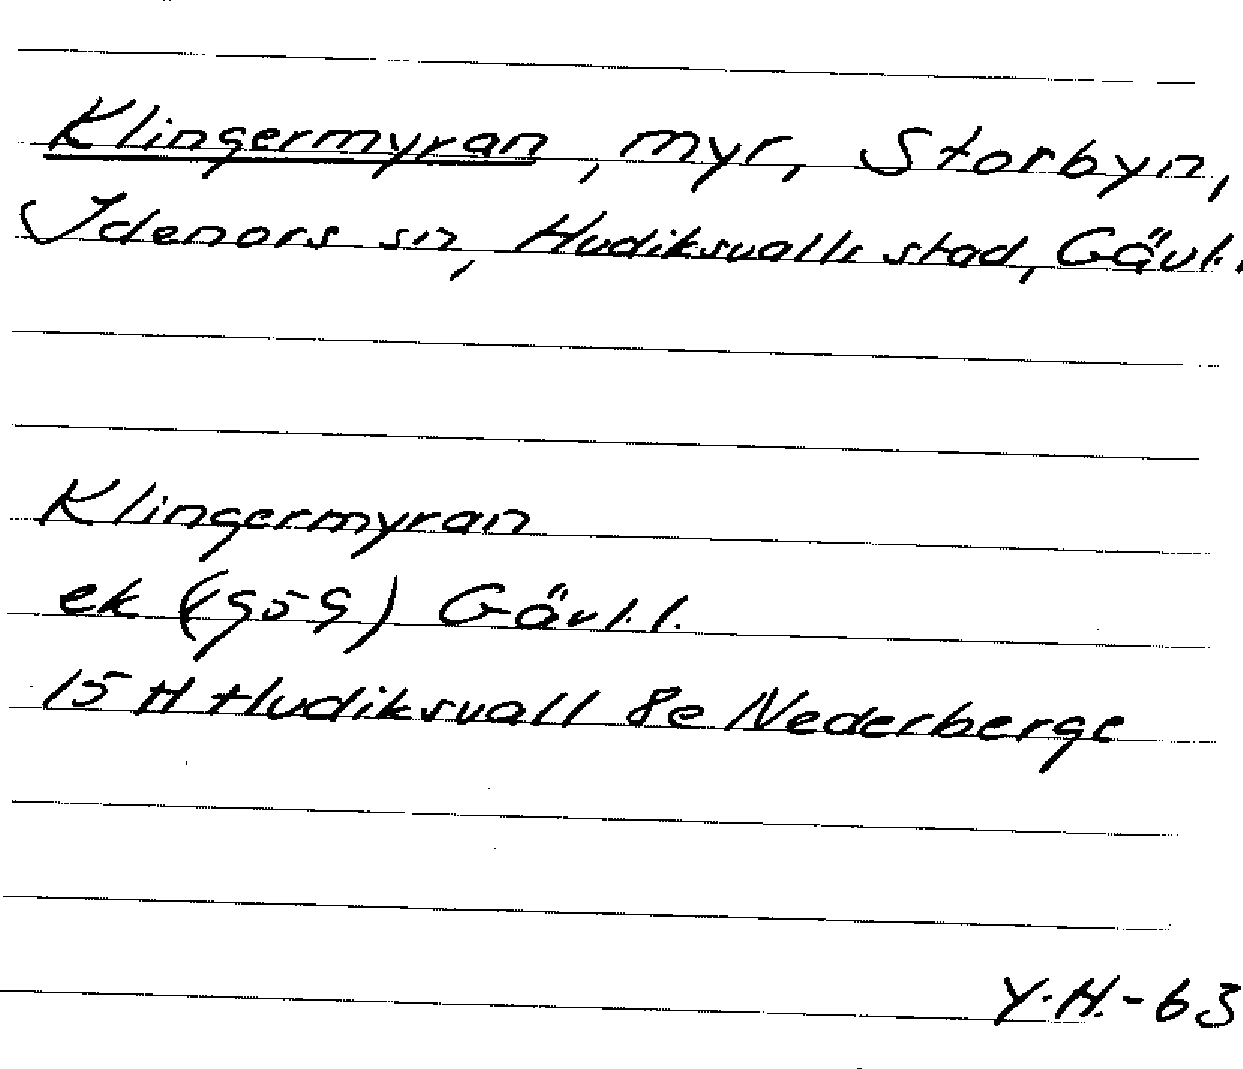 Klingermyran, myr, Storbyn,
Idenors sn, Hudiksvalls stad, Gävl.
Klingermyran
ek (1959) Gävl. l.
15 H Hudiksvall 8e Nederberge
Y.H.-63